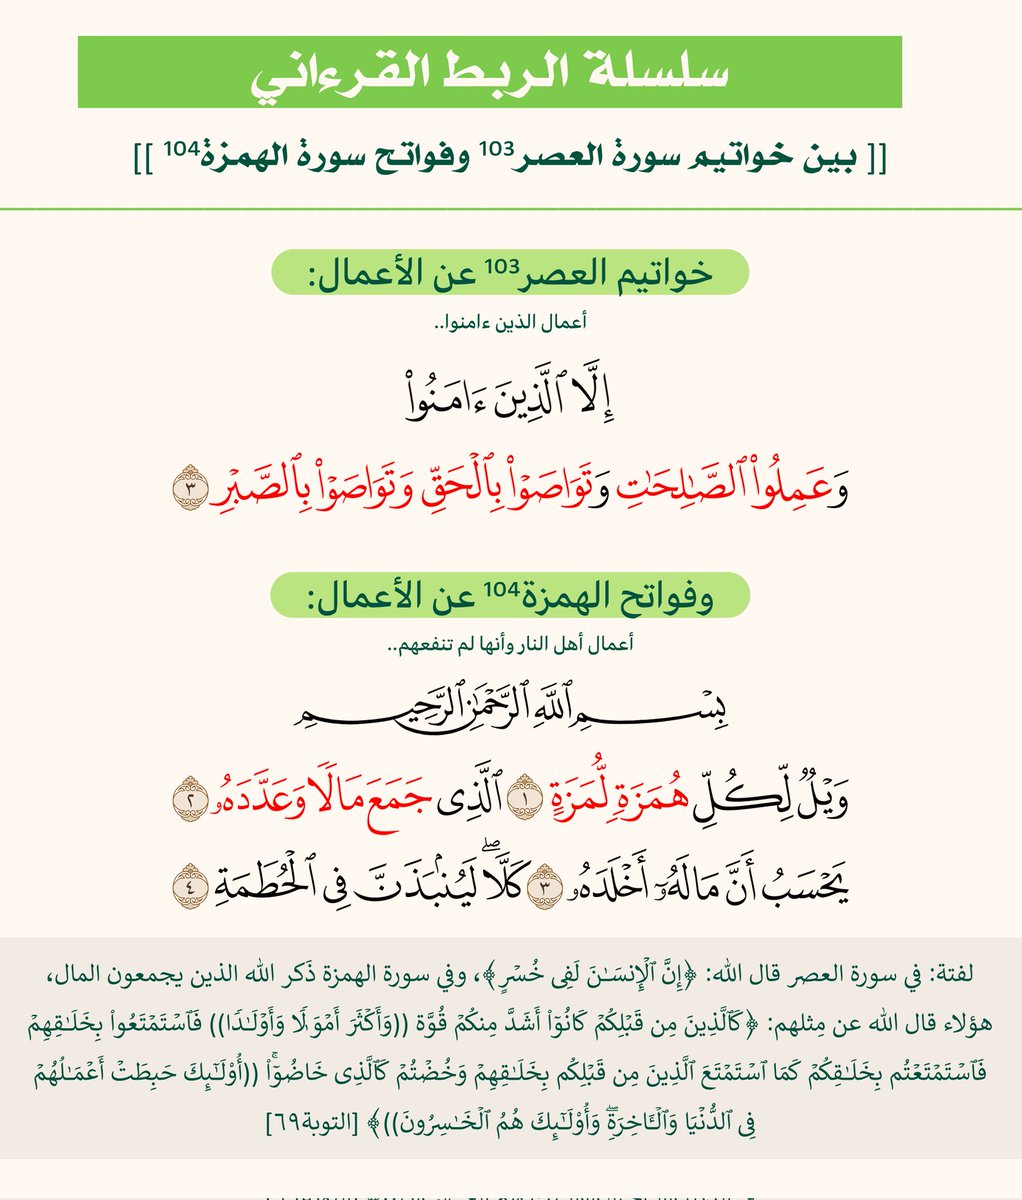 سلسلة الربط القرءاني
[[ بين خواتيم سورة العصر¹⁰³ وفواتح سورة الهمزة¹⁰⁴ ]]
خواتيم العصر¹⁰³ عن الأعمال:
أعمال الذين ءامنوا..
إِلَّا ٱلَّذِينَ ءَامَنُوا۟
وَعَمِلُوا۟ ٱلصَّـٰلِحَـٰتِ وَتَوَاصَوْا۟ بِٱلْحَقِّ وَتَوَاصَوْا۟ بِٱلصَّبْرِ ٣
وفواتح الهمزة¹⁰⁴ عن الأعمال:
أعمال أهل النار وأنها لم تنفعهم..
بِسْمِ ٱللَّهِ ٱلرَّحْمَـٰنِ ٱلرَّحِيمِ
وَيْلٌ لِّكُلِّ هُمَزَةٍ لُّمَزَةٍ ١ ٱلَّذِى جَمَعَ مَالًا وَعَدَّدَهُۥ ٢
يَحْسَبُ أَنَّ مَالَهُۥٓ أَخْلَدَهُۥ ٣ كَلَّا ۖ لَيُنۢبَذَنَّ فِى ٱلْحُطَمَةِ ٤
لفتة: في سورة العصر قال الله: ﴿إِنَّ ٱلْإِنسَـٰنَ لَفِى خُسْرٍ﴾، وفي سورة الهمزة ذَكر الله الذين يجمعون المال،
هؤلاء قال الله عن مِثلهم: ﴿كَٱلَّذِينَ مِن قَبْلِكُمْ كَانُوٓا۟ أَشَدَّ مِنكُمْ قُوَّةً ((وَأَكْثَرَ أَمْوَٰلًا وَأَوْلَـٰدًا)) فَٱسْتَمْتَعُوا۟ بِخَلَـٰقِهِمْ
فَٱسْتَمْتَعْتُم بِخَلَـٰقِكُمْ كَمَا ٱسْتَمْتَعَ ٱلَّذِينَ مِن قَبْلِكُم بِخَلَـٰقِهِمْ وَخُضْتُمْ كَٱلَّذِى خَاضُوٓا۟ ۚ ((أُو۟لَـٰٓئِكَ حَبِطَتْ أَعْمَـٰلُهُمْ
فِى ٱلدُّنْيَا وَٱلْـَٔاخِرَةِ ۖ وَأُو۟لَـٰٓئِكَ هُمُ ٱلْخَـٰسِرُونَ))﴾ [التوبة٦٩]